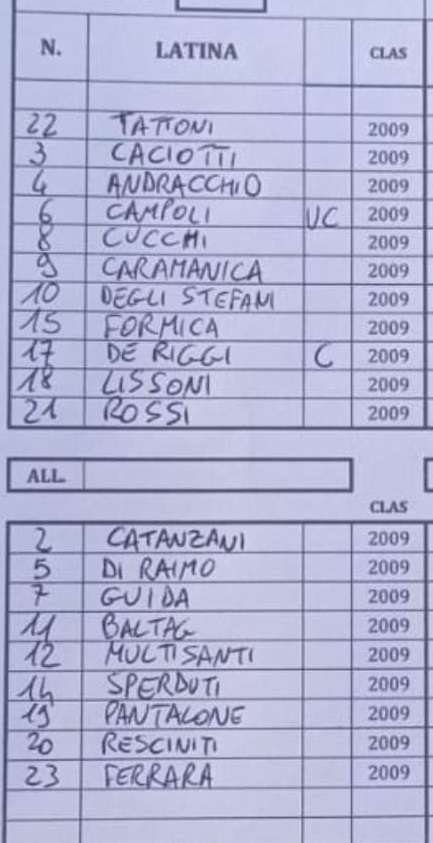 N. LATINA CLAS
22 TATTONI 2009
3 CACIOTTI 2009
4 ANDRACCHIO 2009
6 CAMPOLI VC 2009
8 CUCCHI 2009
9 CARAMANICA 2009
10 DEGLI STEFANI 2009
15 FORMICA 2009
17 DE RIGGI C 2009
18 LISSONI 2009
21 ROSSI 2009
ALL.
CLAS
2 CATANZANI 2009
5 DI RAIMO 2009
7 GUIDA 2009
11 BALTAG 2009
12 MULTISANTI 2009
14 SPERDUTI 2009
19 PANTALONE 2009
20 RESCINITI 2009
23 FERRARA 2009